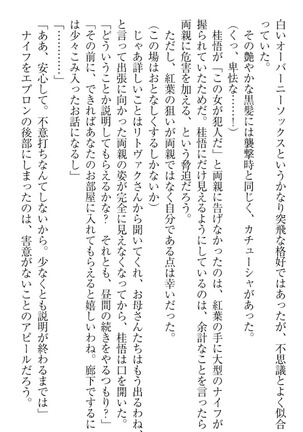 白いオーバーニーソックスというかなり突飛な格好ではあったが、不思議とよく似合
っていた。
その艶やかな黒髪には襲撃時と同じく、カチューシャがあった。
（くっ、卑怯な……！）
桂悟が「この女が犯人だ」と両親に告げなかったのは、紅葉の手に大型のナイフが
握られていたためだ。桂悟にだけ見えるようにしているのは、余計なことを言ったら
両親に危害を加える、という脅迫だろう。
ただし、紅葉の狙いが両親ではなく自分である点は幸いだった。
（この場はおとなしくするしかないか）
じゃあ詳しいことはリトヴァクさんから聞いてくれ、お母さんたちはもう出るわね、
と言って出張に向かった両親の姿が完全に見えなくなってから、桂悟は口を開いた。
「どういうことか説明してもらえるかな？　それとも、昼間の続きをやるつもり？」
「その前に、できればあなたのお部屋に入れてもらえると嬉しいわね。廊下でするに
は少々こみ入ったお話になるし」
「…………」
「ああ、安心して。不意打ちなんてしないから。少なくとも説明が終わるまでは」
ナイフをエプロンの後部にしまったのは、害意がないことのアピールだろう。